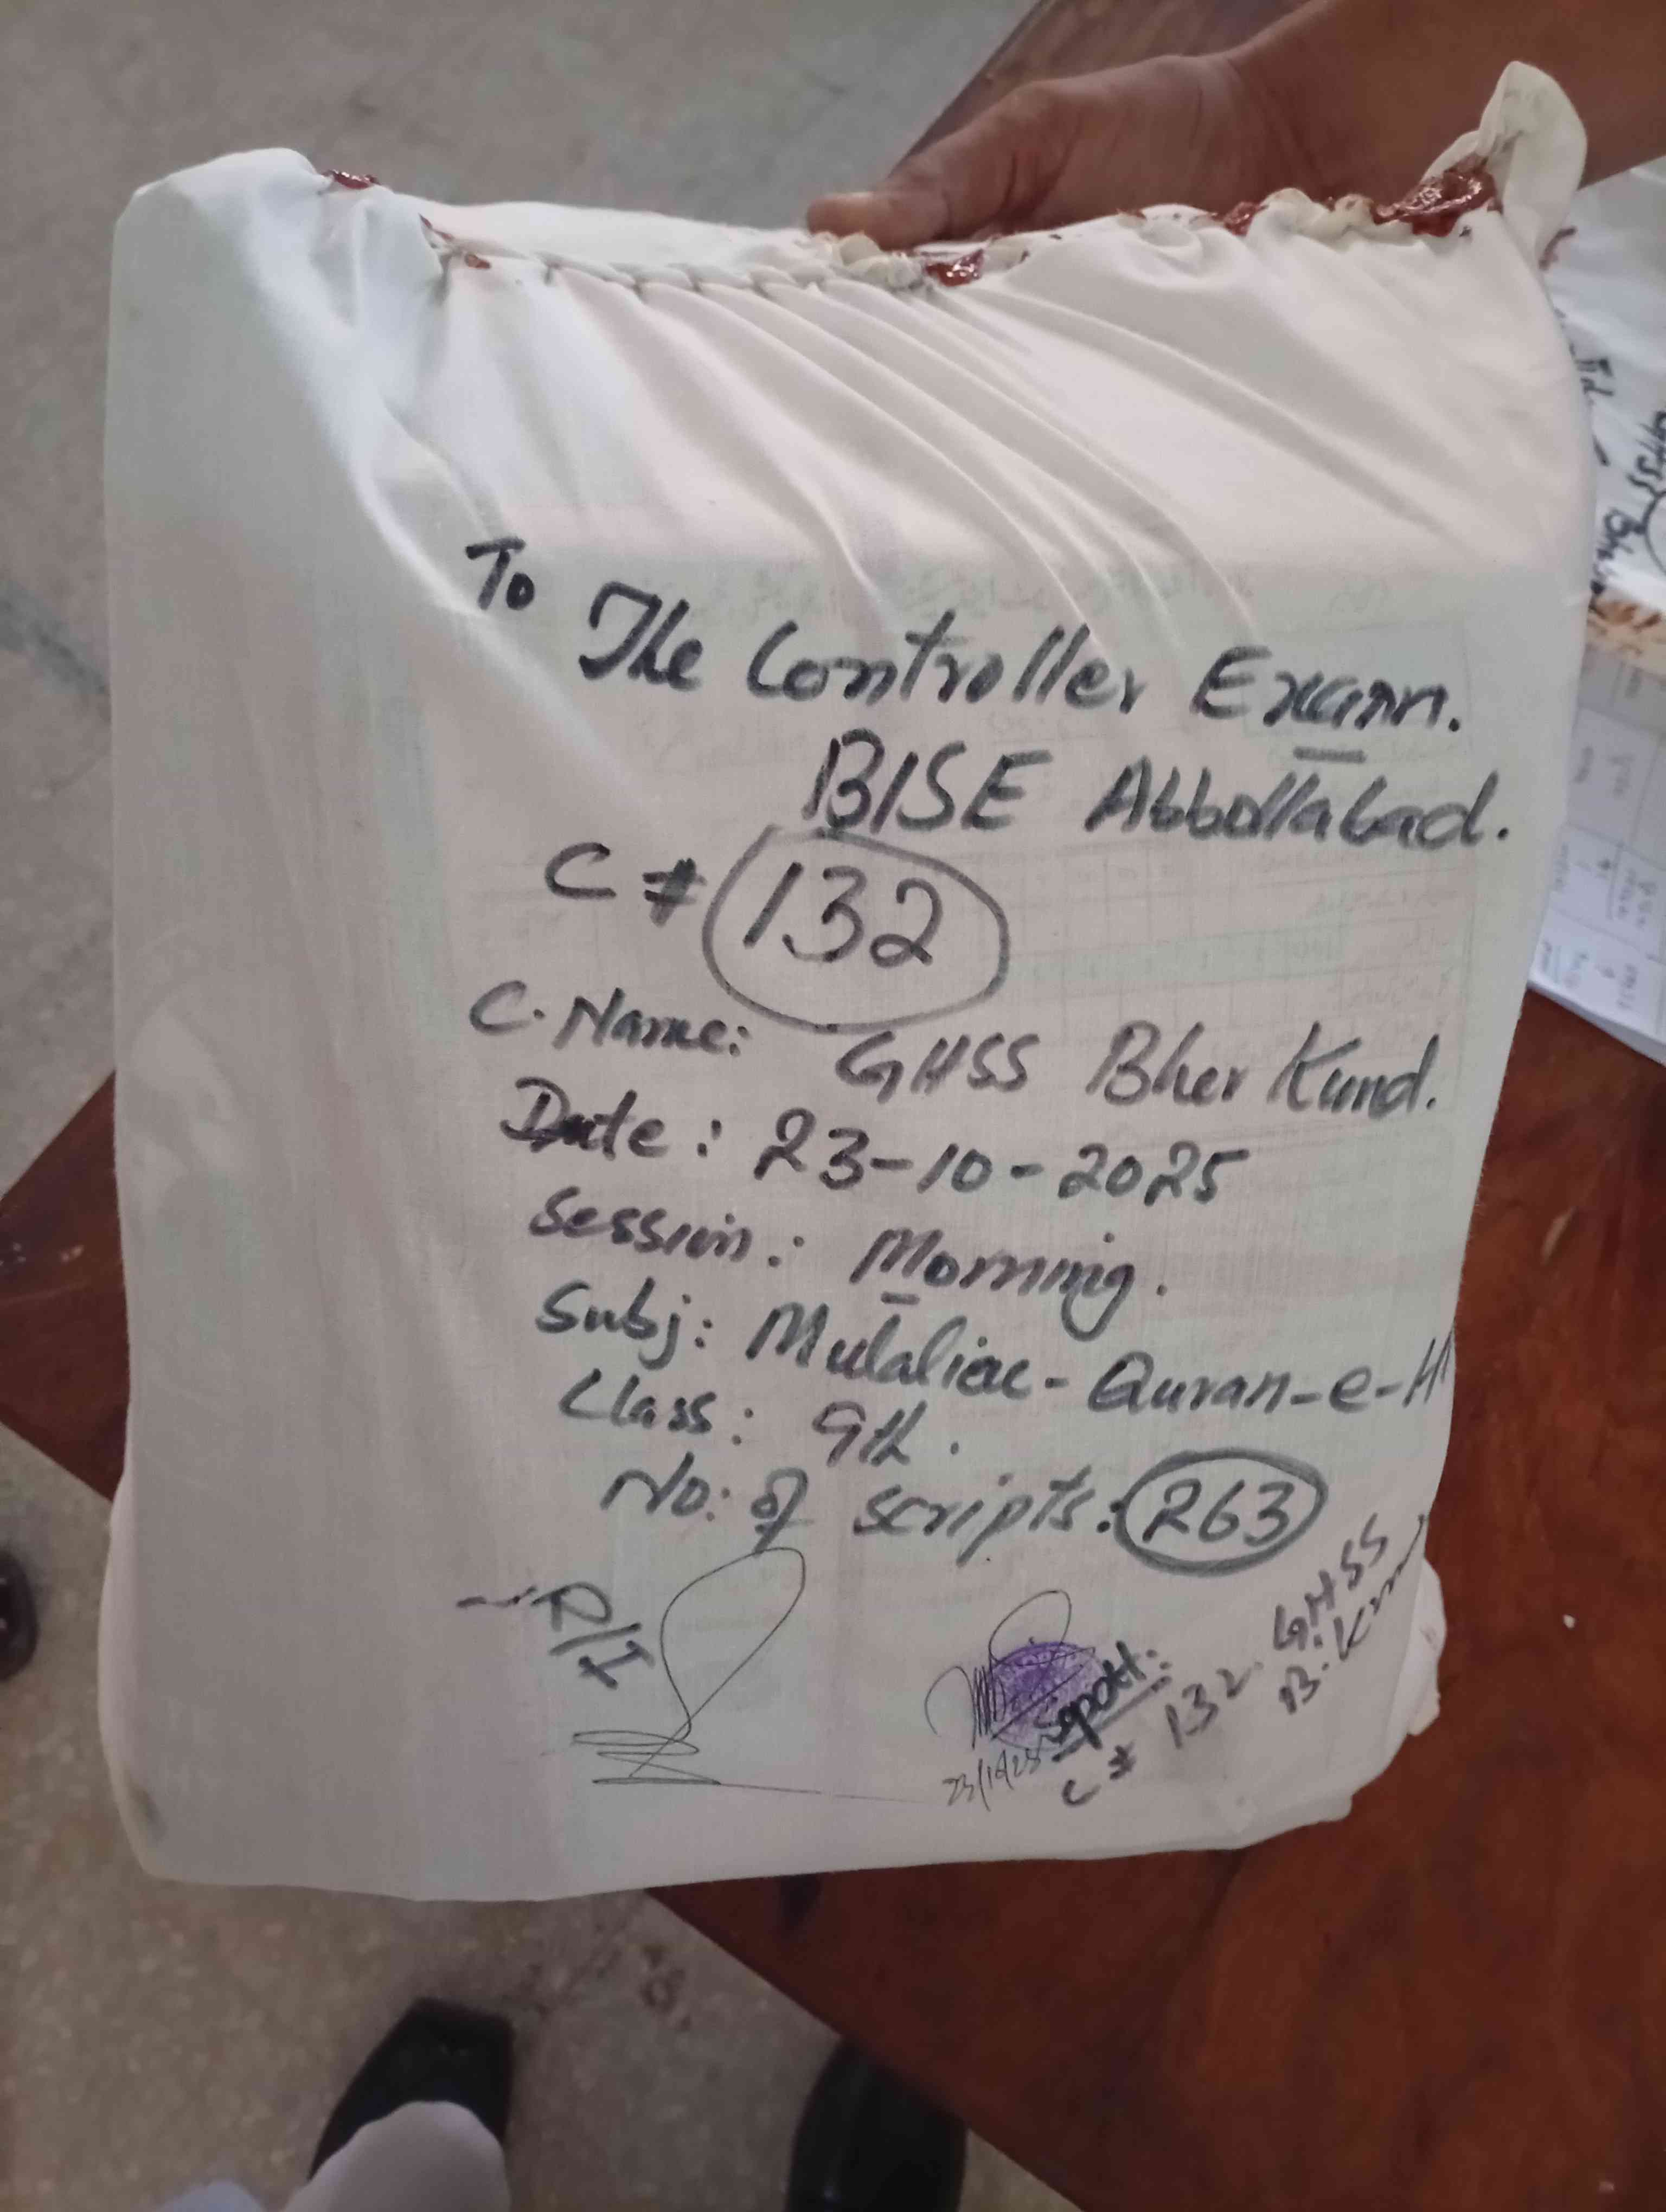 To
The Controller Exam.
BISE Abbottabad.
C # 132
C. Name: GHSS Bher Kund.
Date: 23-10-2025
Session: Morning.
Subj: Mutaliae-Quran-e-H
Class: 9th.
No: of scripts: 263
R/I
Supdtt:
23/10/25
C # 132. GHSS
B. Kund
GHSS